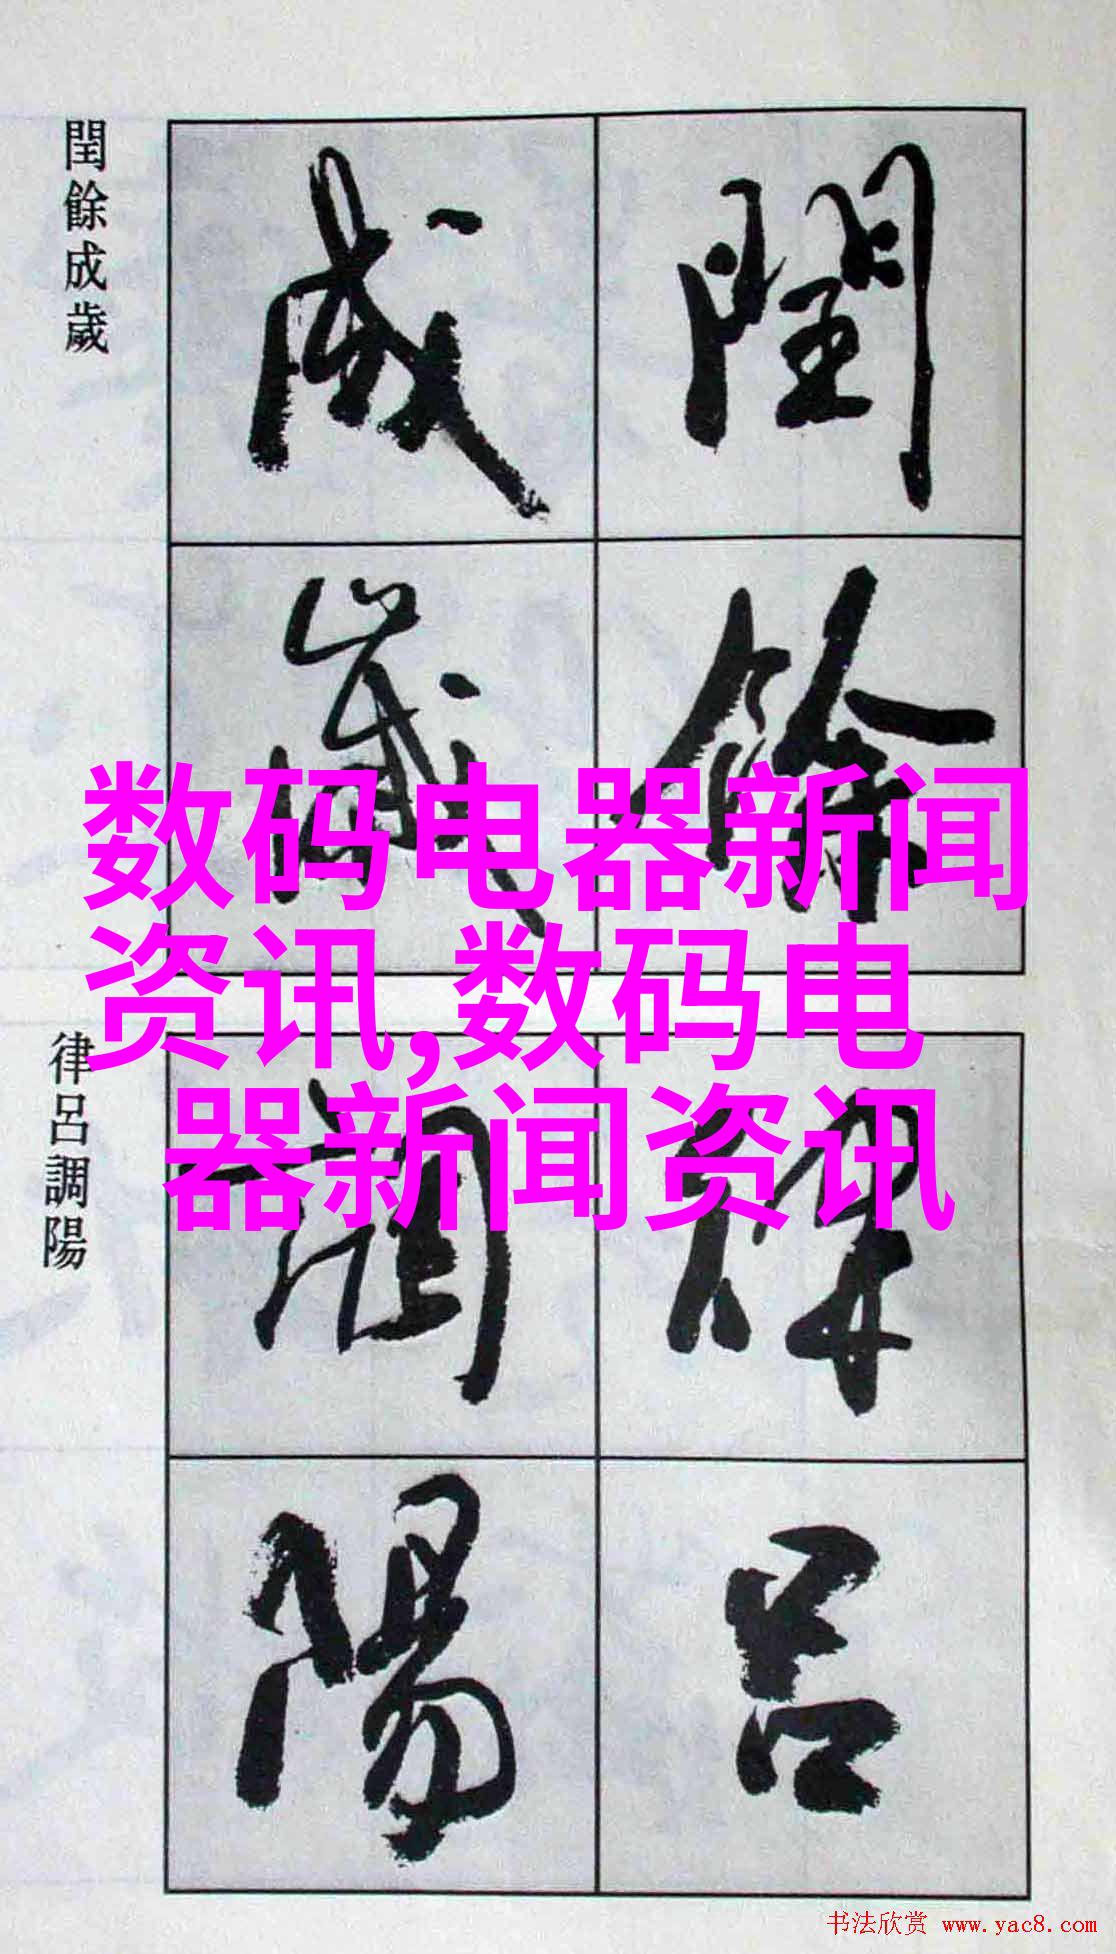 閏餘成歲
閏
餘
成
歲
数码电器新闻
资讯,数码电
器新闻资讯
律呂調陽
律
呂
調
陽
书法欣赏 www.yac8.com